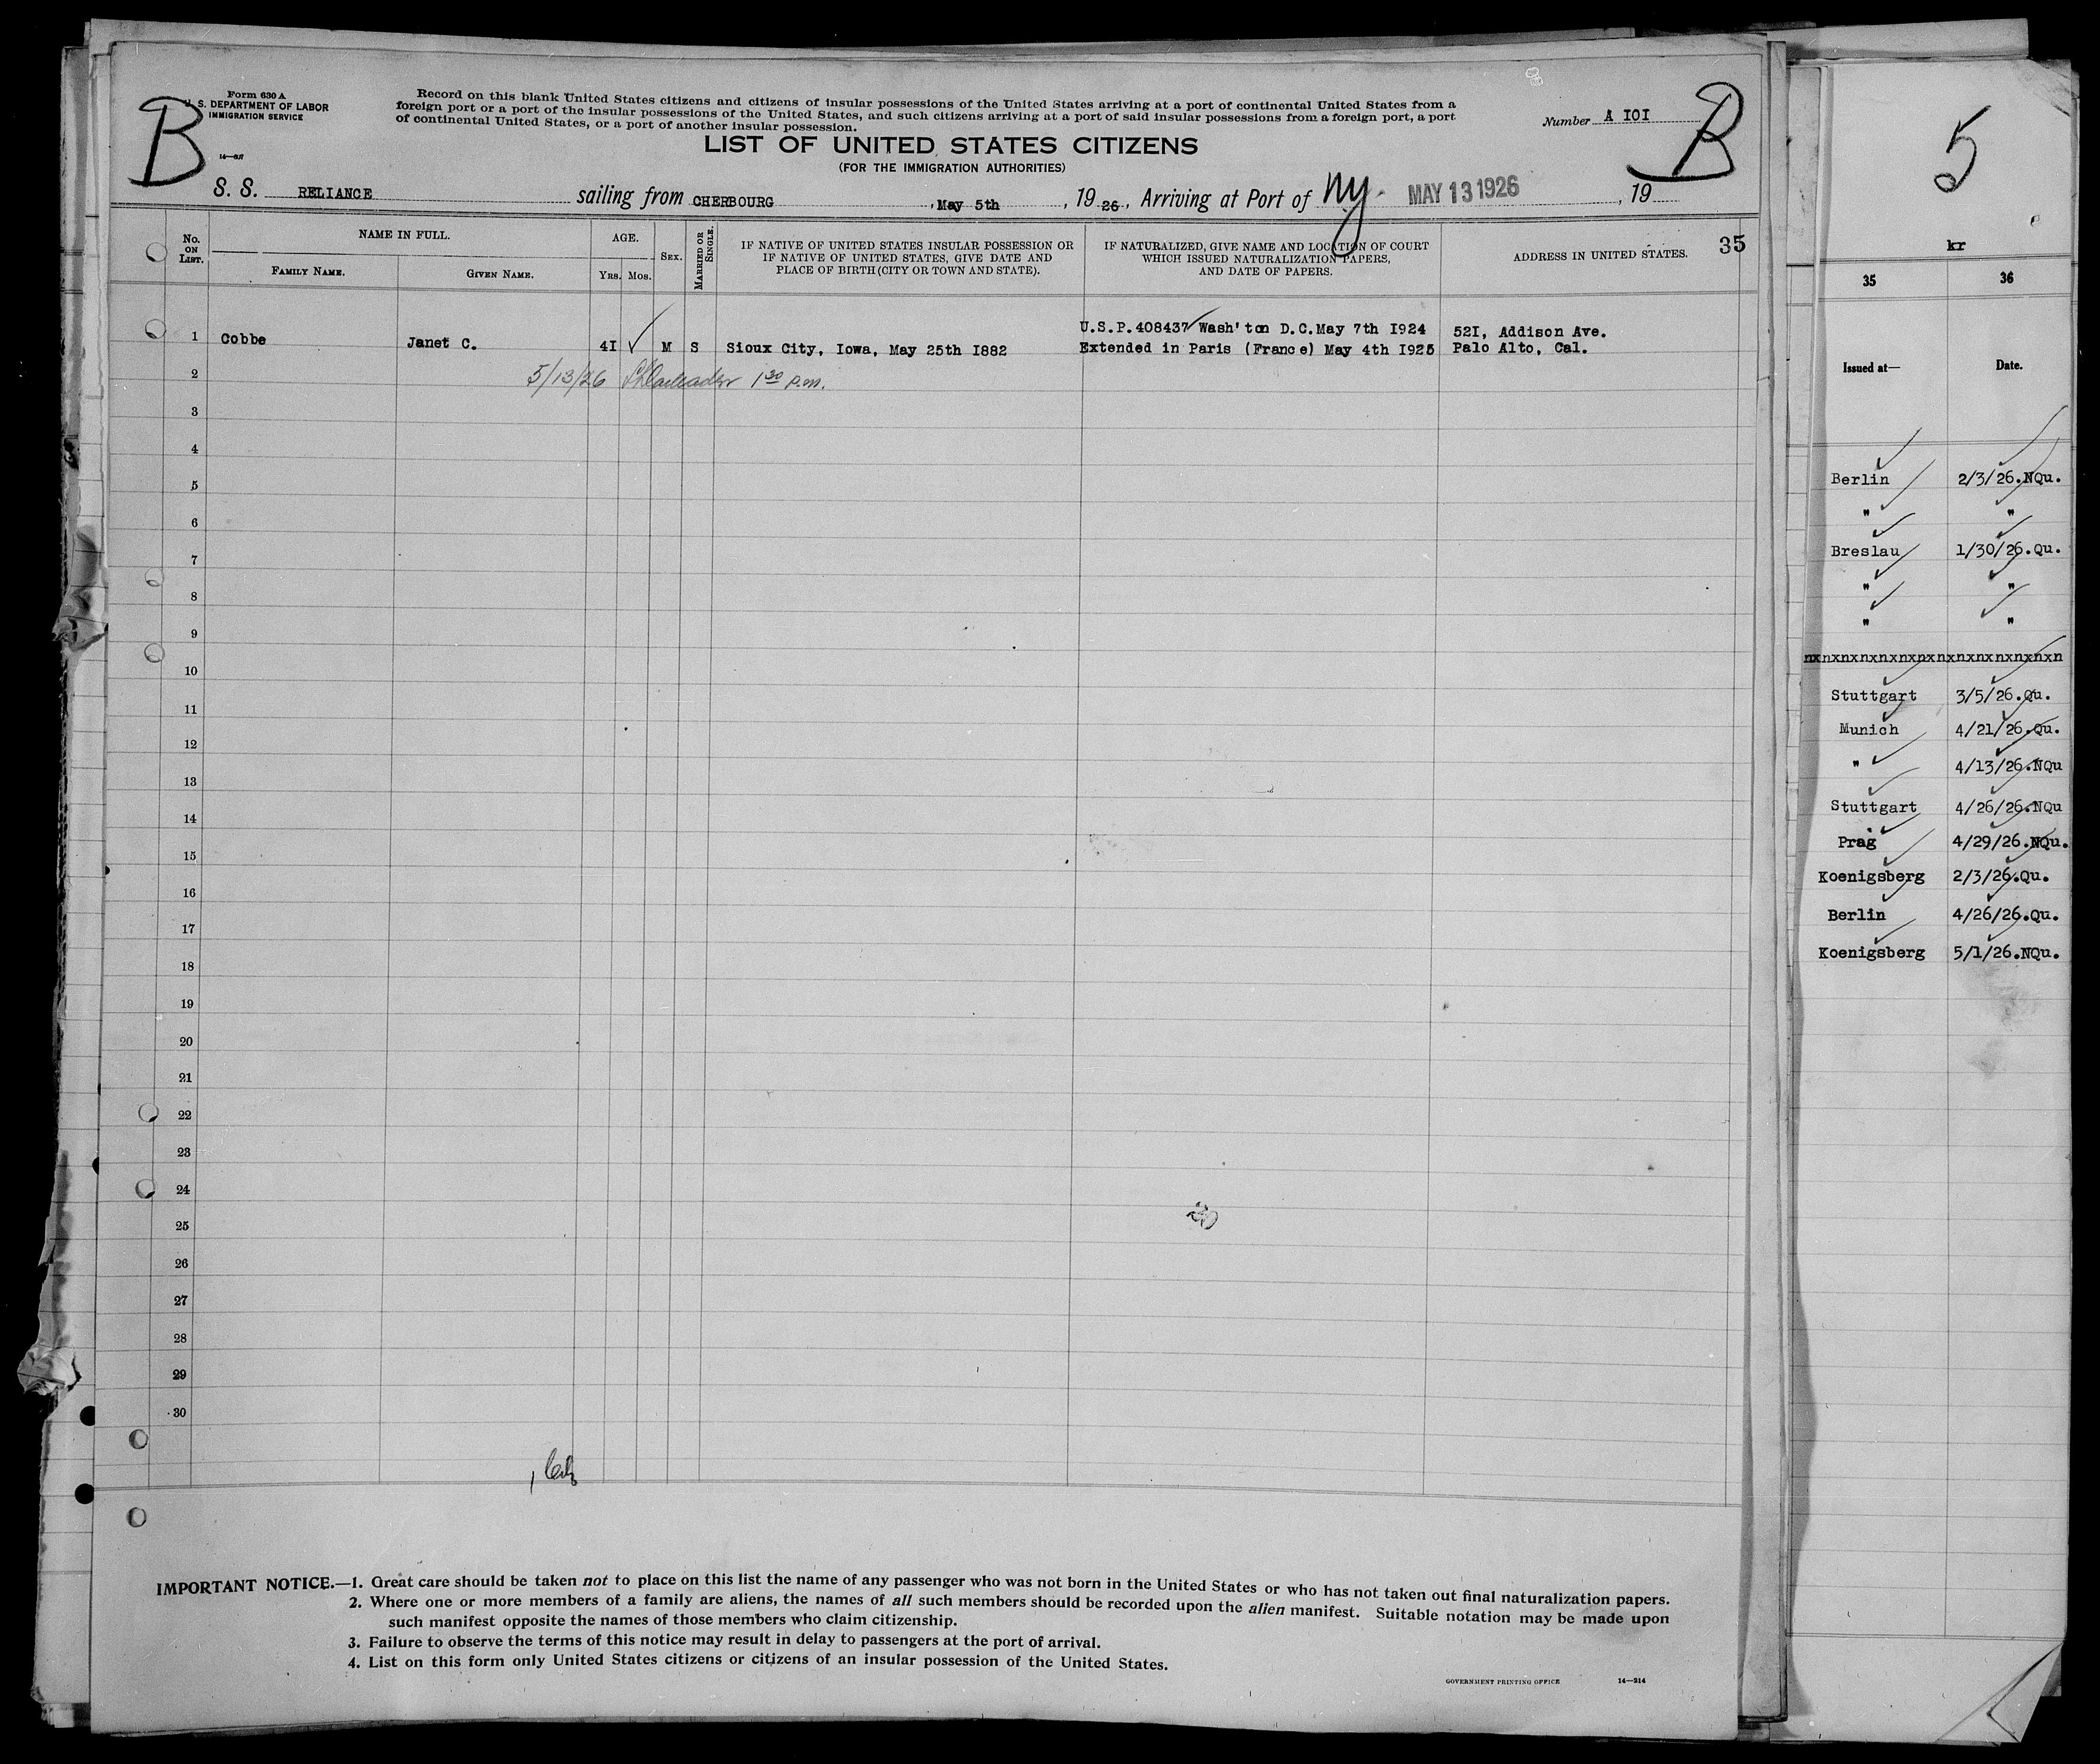 Form 630 A
U. S. DEPARTMENT OF LABOR
IMMIGRATION SERVICE
B
Record on this blank United States citizens and citizens of insular possessions of the United States arriving at a port of continental United States from a
foreign port or a port of the insular possessions of the United States, and such citizens arriving at a port of said insular possessions from a foreign port, a port
of continental United States, or a port of another insular possession.
Number A IOI
B
LIST OF UNITED STATES CITIZENS
(FOR THE IMMIGRATION AUTHORITIES)
S. S. RELIANCE sailing from CHERBOURG , May 5th , 19 26 , Arriving at Port of NY. MAY 13 1926 , 19
35
No. ON LIST.
NAME IN FULL.
FAMILY NAME. GIVEN NAME.
AGE.
Yrs. Mos.
SEX.
MARRIED OR SINGLE.
IF NATIVE OF UNITED STATES INSULAR POSSESSION OR
IF NATIVE OF UNITED STATES, GIVE DATE AND
PLACE OF BIRTH (CITY OR TOWN AND STATE).
IF NATURALIZED, GIVE NAME AND LOCATION OF COURT
WHICH ISSUED NATURALIZATION PAPERS,
AND DATE OF PAPERS.
ADDRESS IN UNITED STATES.
1 Cobbe Janet C. 4I M S Sioux City, Iowa, May 25th I882
U.S.P.408437 Wash'ton D.C.May 7th I924
Extended in Paris (France) May 4th I925
52I, Addison Ave.
Palo Alto, Cal.
2 5/13/26 1 30 p.m.
3
4
5
6
7
8
9
10
11
12
13
14
15
16
17
18
19
20
21
22
23
24
25
26
27
28
29
30
IMPORTANT NOTICE.—1. Great care should be taken not to place on this list the name of any passenger who was not born in the United States or who has not taken out final naturalization papers.
2. Where one or more members of a family are aliens, the names of all such members should be recorded upon the alien manifest. Suitable notation may be made upon
such manifest opposite the names of those members who claim citizenship.
3. Failure to observe the terms of this notice may result in delay to passengers at the port of arrival.
4. List on this form only United States citizens or citizens of an insular possession of the United States.
GOVERNMENT PRINTING OFFICE 14—214
5
kr
35 36
Issued at— Date.
Berlin 2/3/26.NQu.
" "
Breslau 1/30/26.Qu.
" "
" "
nxnxnxnxnxnxnxnxnxnxnxnxnxn
Stuttgart 3/5/26.Qu.
Munich 4/21/26.Qu.
" 4/13/26.NQu
Stuttgart 4/26/26.NQu
Prag 4/29/26.NQu.
Koenigsberg 2/3/26.Qu.
Berlin 4/26/26.Qu.
Koenigsberg 5/1/26.NQu.